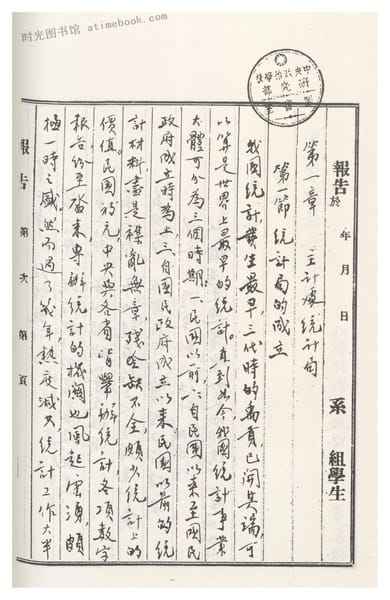 时光图书馆 atimebook.com
報告於 年 月 日 系 組學生
第一章 主計處統計局
第一節 統計局的成立
我國統計發生最早，三代時的禹貢，已開其端，可
以算是世界上最早的統計。直到如今我國統計事業
大體可分為三個時期：一、民國以前二、自民國以來至國民
政府成立時為止三、自國民政府成立以來民國以前的統
計材料盡是襍亂無章，殘缺不全頗少統計上的
價值。民國初元，中央與各省皆舉辦統計，各項數字
報告紛至沓來專辦統計的機關也風起雲湧，頗
極一時之盛。然而過了幾年，熱度減少統計工作大半
報告 第 次 第 頁